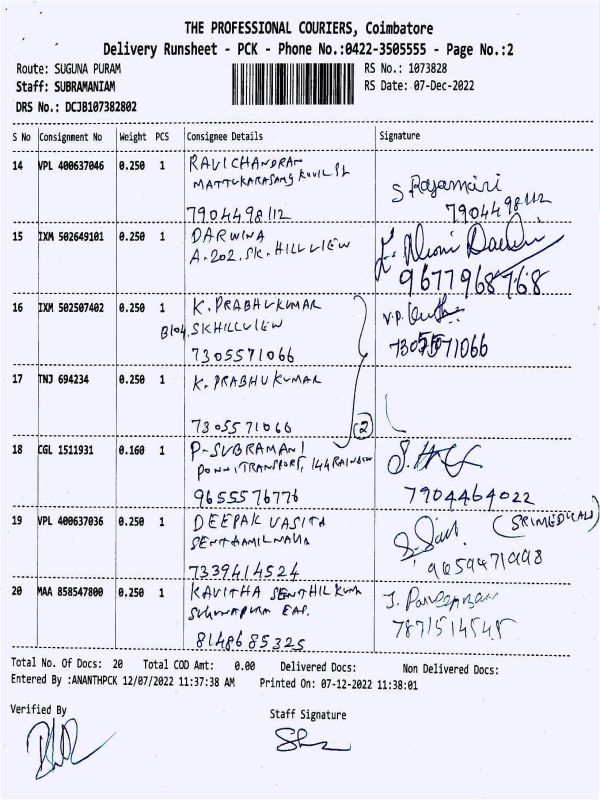 THE PROFESSIONAL COURIERS, Coimbatore
Delivery Runsheet - PCK - Phone No.:0422-3505555 - Page No.:2
Route: SUGUNA PURAM RS No.: 1073828
Staff: SUBRAMANIAM RS Date: 07-Dec-2022
DRS No.: DCJB107382802
S No Consignment No Weight PCS Consignee Details Signature
14 VPL 400637046 0.250 1 RAVICHANDRAN
MATTUKARASAMY KOVIL ST
S Rajamani
7904498112 7904498112
15 IXM 502649101 0.250 1 DARWINA
A.202.SK.HILLVIEW
9677968768
16 IXM 502507402 0.250 1 K.PRABHUKUMAR
B104,SKHILLVIEW V.P.
7305571066 7305571066
17 TNJ 694234 0.250 1 K.PRABHUKUMAR
7305571066 2
18 CGL 1511931 0.160 1 P-SUBRAMANI
PONNITRANSPORT, 144 RAINBOW
9655576776 7904464022
19 VPL 400637036 0.250 1 DEEPAK VASITA
(SRIMEDICALS)
7339414524 9659471998
20 MAA 858547800 0.250 1 KAVITHA SENTHILKUMA
8148685325 7871514545
Total No. Of Docs: 20 Total COD Amt: 0.00 Delivered Docs: Non Delivered Docs:
Entered By :ANANTHPCK 12/07/2022 11:37:38 AM Printed On: 07-12-2022 11:38:01
Verified By Staff Signature